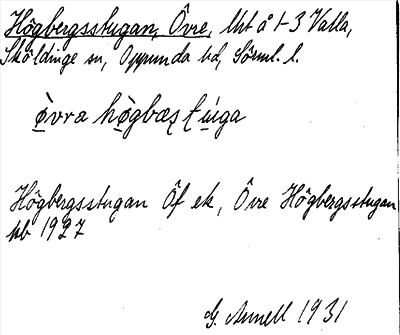 Högbergsstugan, Övre, Uht å 1-3 Valla,
Sköldinge sn, Oppunda hd, Sörml. l.
ö̀vra hö̀gbæʂʈúga
Högbergsstugan Öf ek, Övre Högbergsstugan
kb 1927
G. Annell 1931